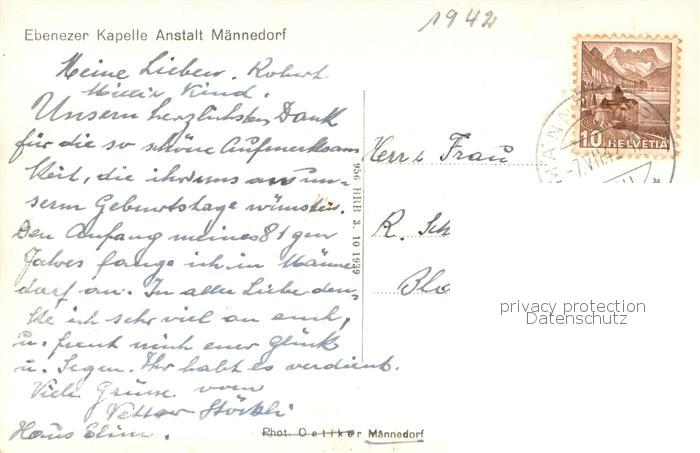 1942
Ebenezer Kapelle Anstalt Männedorf
Meine Lieben. Robert
Kind.
Unsern herzlichsten Dank
für die so schöne Aufmerksam
keit, die ihr uns an un-
serm Geburtstage wünsten.
Den Anfang meines 81 gen
Jahres fange ich in Männe
dorf an. In aller Liebe den-
ke ich sehr viel an euch,
u. freut mich euer Glück
u. Segen. Ihr habt es verdient.
Viele Grüsse vom
Vetter Stöckli
Haus Elim.
956 BRB 3. 10 1939
Herr u Frau
R. Sch
Blo
10 HELVETIA
MÄNN
-7.VII.42
privacy protection
Datenschutz
Phot. Oetiker Männedorf